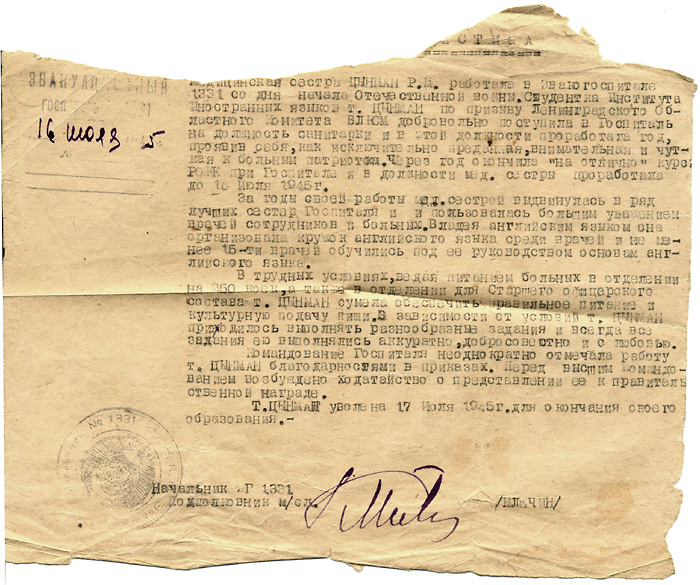 СТИКА
ЭВАКУАЦ ННЫЙ
ГОСП 31
16 июля 5
Медицинская сестра ЦЫНМАН Р.М. работала в Эвакогоспитале
1331 со дня начала Отечественной войны.Студентка Института
Иностранных языков т. ЦЫНМАН по призыву Ленинградского Об-
ластного Комитета ВЛКСМ добровольно поступила в Госпиталь
на должность санитарки и в этой должности проработала год,
проявив себя,как исключительно преданная,внимательная и чут-
кая к больным патриотка.Через год окончила "на отлично" курсы
РОКК при Госпитале и в должности мед. сестры проработала
до 16 Июля 1945г.
За годы своей работы мед.сестрой выдвинулась в ряд
лучших сестер Госпиталя и и пользовалась большим уважением
врачей сотрудников и больных.Владея английским языком она
организовала кружок английского языка среди врачей и не ме-
нее 15-ти врачей обучились под ее руководством основам ан-
лийского языка.
В трудных условиях,ведая питанием больных в отделении
на 350 коек,а также в отделении для Старшего офицерского
состава т. ЦЫНМАН сумела обеспечить правильное питание и
культурную подачу пищи.В зависимости от условий т. ЦЫНМАН
приходилось выполнять разнообразные задания и всегда все
задания ею выполнялись аккуратно,добросовестно и с любовью.
Командование Госпиталя неоднократно отмечала работу
т. ЦЫНМАН благодарностями в приказах. Перед высшим командо-
ванием возбуждено ходатайство о представлении ее к правитель
ственной награде.
Т.ЦЫНМАН уволена на 17 Июля 1945г.для окончания своего
образования.-
№ 1331
Начальник ЭГ 1331
Подполковник м/сл. /МЛАЧИН/